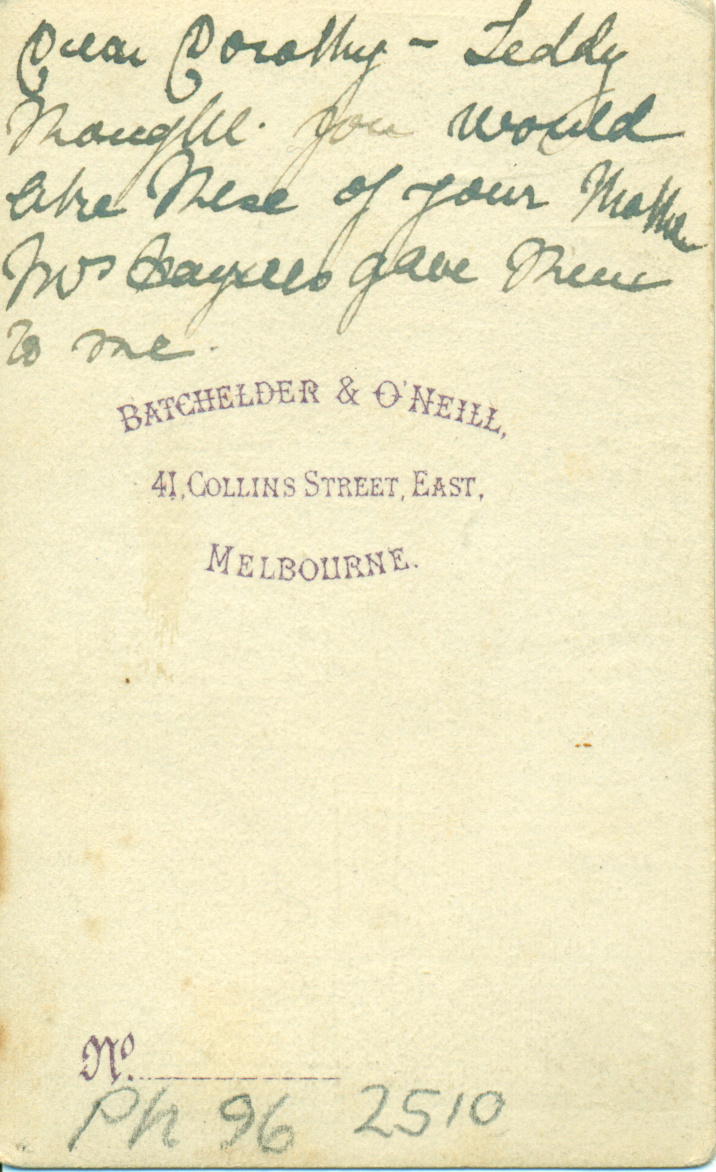 Dear Dorothy - Teddy
thought you would
like these of your Mother
Mrs gave them
to me.
BATCHELDER & O'NEILL,
41, COLLINS STREET, EAST,
MELBOURNE.
No.
Ph 96 2510